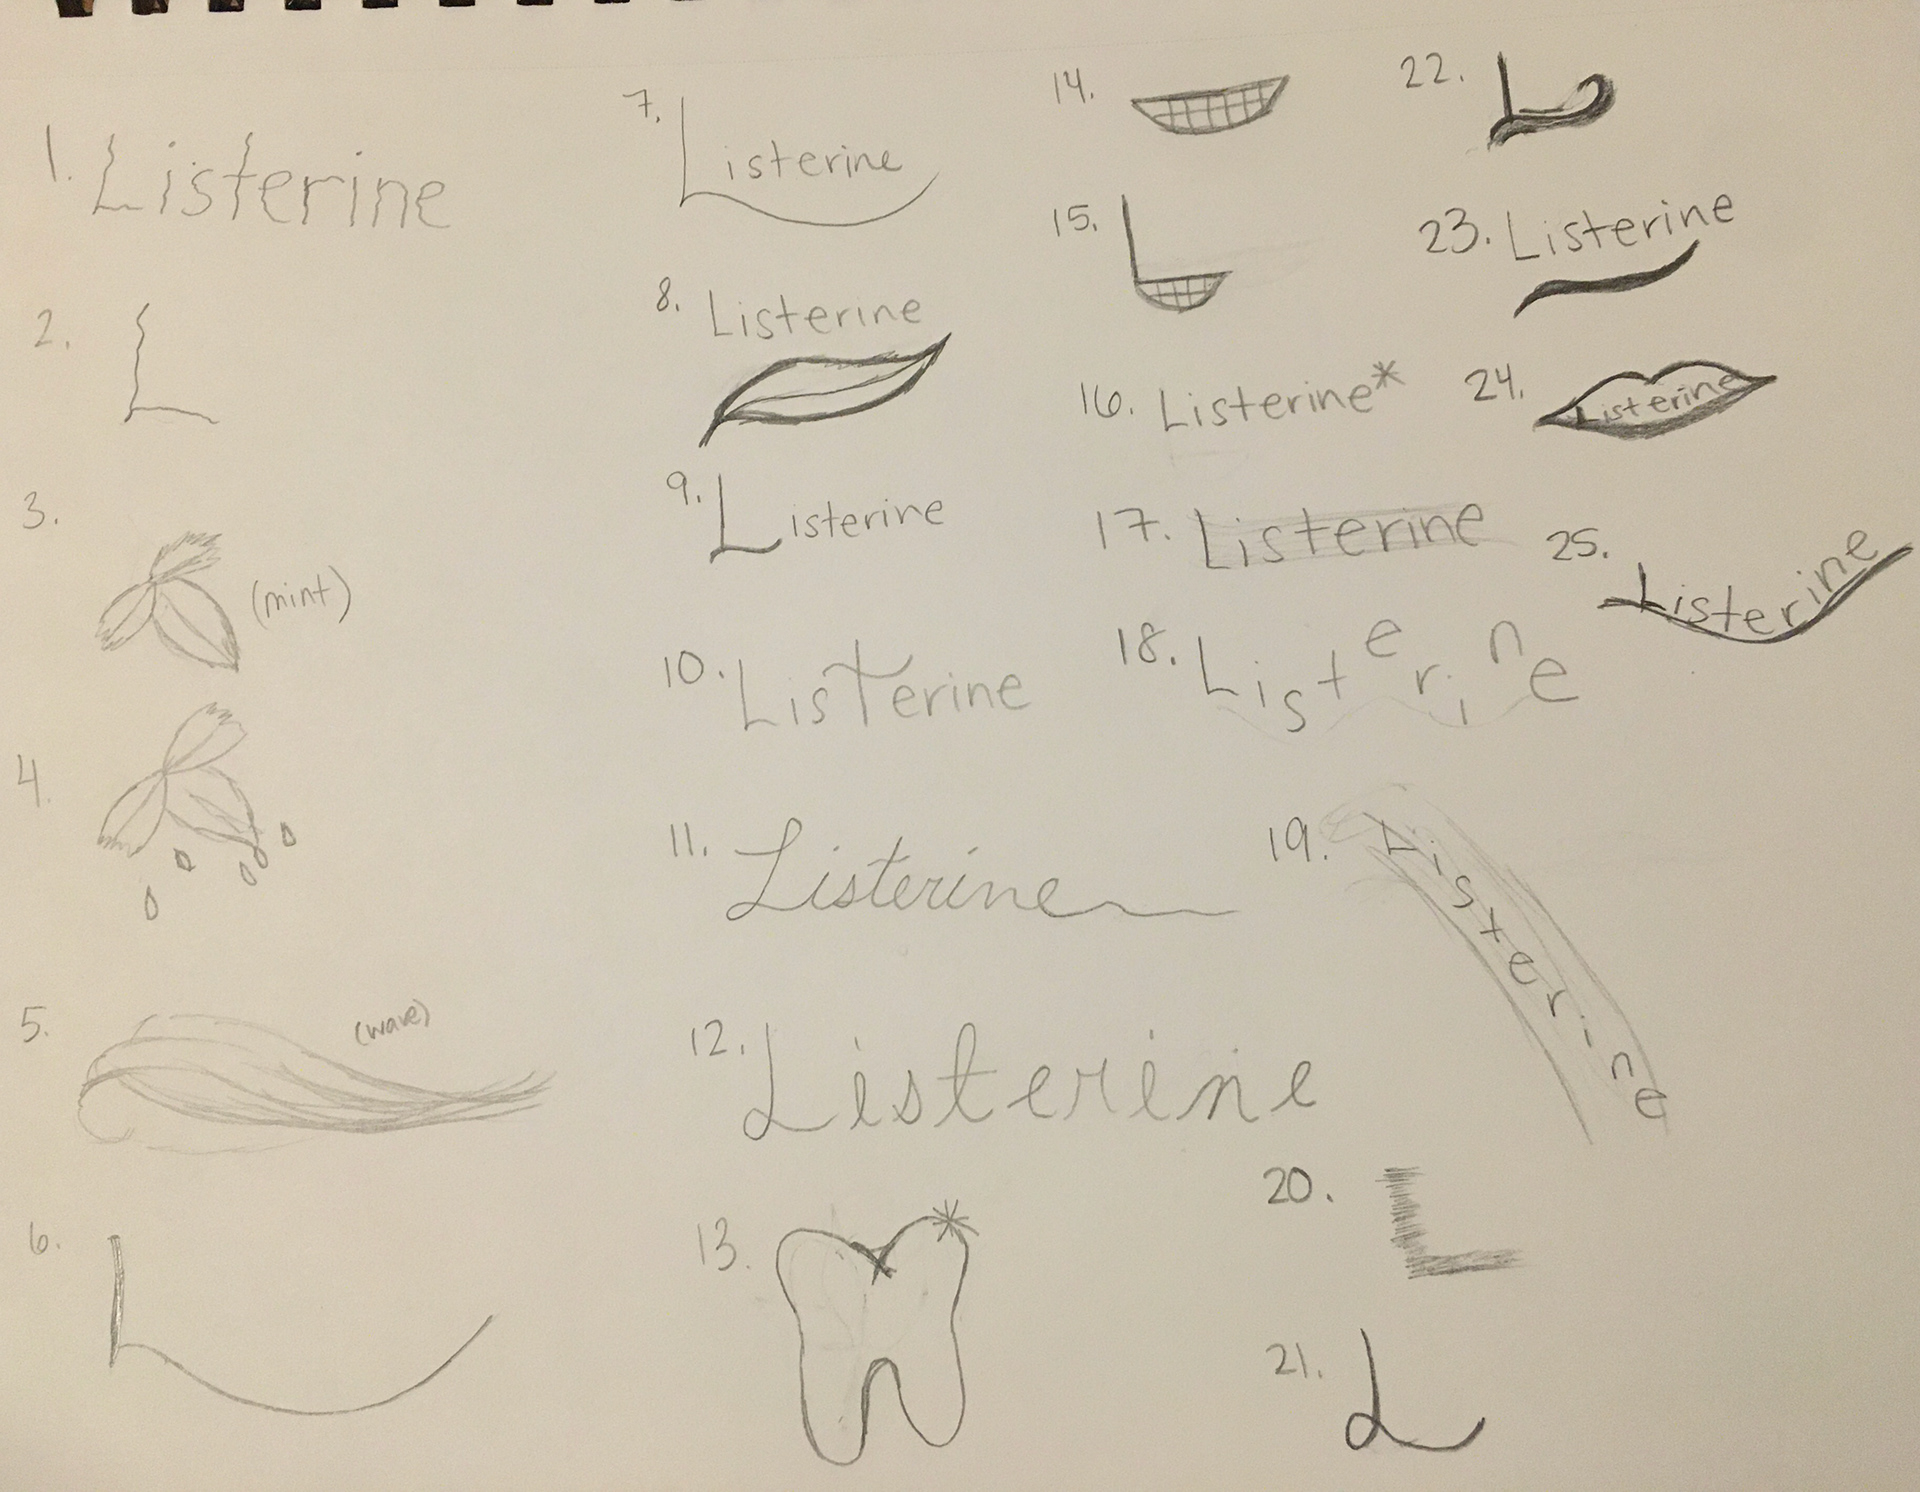 1. Listerine
2. L
3. (mint)
4.
5. (wave)
6. L
7. Listerine
8. Listerine
9. Listerine
10. LisTerine
11. Listerine
12. Listerine
13.
14.
15. L
16. Listerine*
17. Listerine
18. Listerine
19. Listerine
20. L
21. L
22. L
23. Listerine
24. Listerine
25. Listerine